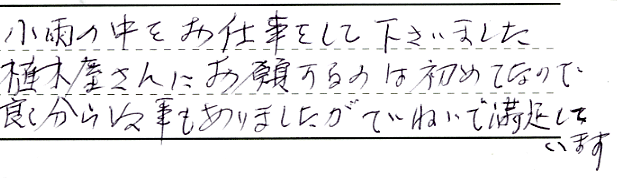 小雨の中をお仕事をして下さいました
植木屋さんにお願するのは初めてなので
良く分からぬ事もありましたがていねいで満足して
います